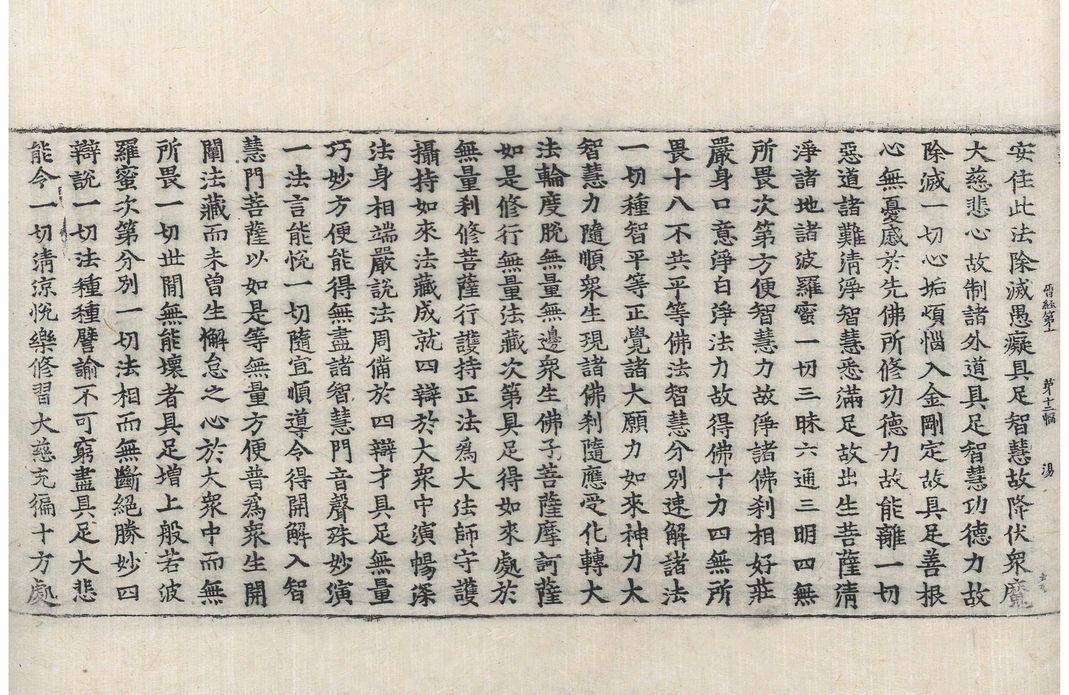 晉經第十 第十三幅 湯
安住此法除滅愚癡具足智慧故降伏衆魔
大慈悲心故制諸外道具足智慧功德力故
除滅一切心垢煩惱入金剛定故具足善根
心無憂慼於先佛所修功德力故能離一切
惡道諸難清淨智慧悉滿足故出生菩薩清
淨諸地諸波羅蜜一切三昧六通三明四無
所畏次第方便智慧力故淨諸佛刹相好莊
嚴身口意淨白淨法力故得佛十力四無所
畏十八不共平等佛法智慧分別速解諸法
一切種智平等正覺諸大願力如來神力大
智慧力隨順衆生現諸佛刹隨應受化轉大
法輪度脫無量無邊衆生佛子菩薩摩訶薩
如是修行無量法藏次第具足得如來處於
無量利修菩薩行護持正法爲大法師守護
攝持如來法藏成就四辯於大衆中演暢深
法身相端嚴說法周備於四辯才具足無量
巧妙方便能得無盡諸智慧門音聲殊妙演
一法言能悅一切隨宜順導令得開解入智
慧門菩薩以如是等無量方便普爲衆生開
闡法藏而未曾生懈怠之心於大衆中而無
所畏一切世間無能壞者具足增上般若波
羅蜜次第分別一切法相而無斷絕勝妙四
辯說一切法種種譬諭不可窮盡具足大悲
能令一切清涼悅樂修習大慈充徧十方處